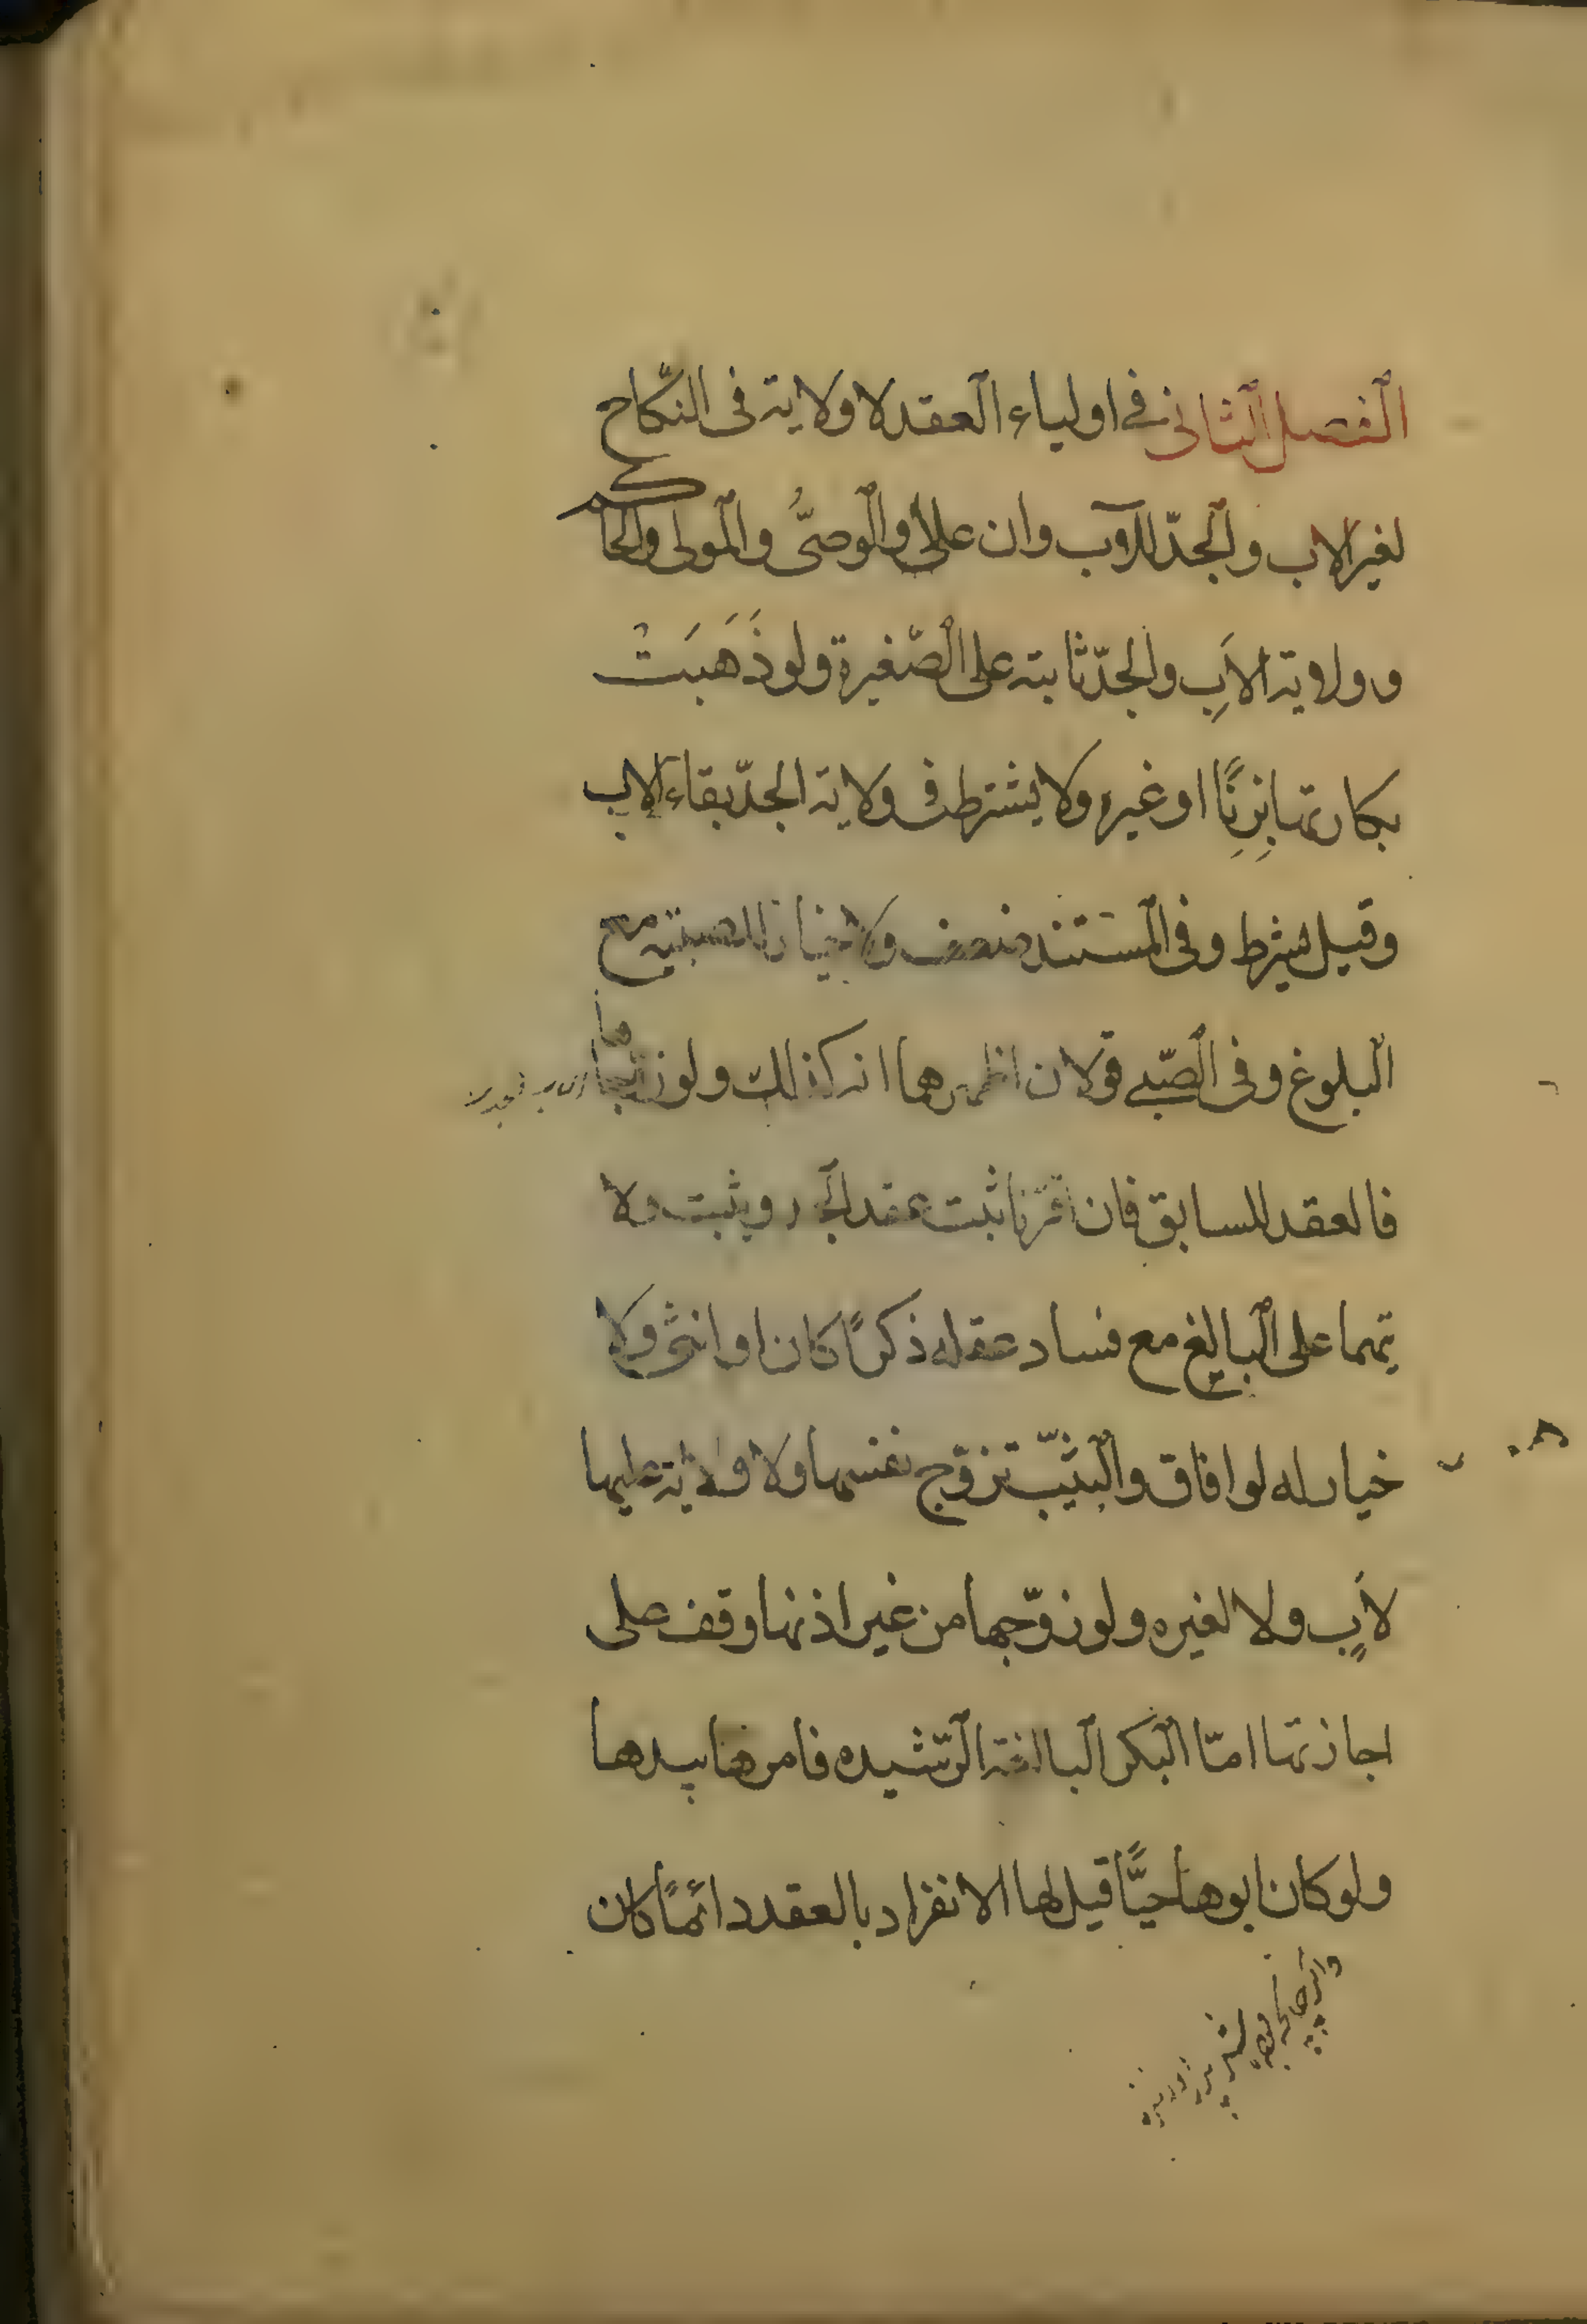 الفصل الثاني في اولياء العقد لا ولاية في النكاح
لغير الاب والجدّ للأب وان علا والوصىُّ والمولى والحاكم
وولاية الاَبِ والجدّ ثابتة على الصّغيرة ولو ذَهَبَتْ
بكارتها بِزِنًا او غيره ولا يشترط فى ولاية الجدّ بقاء الاب
وقيل يشرط وفى المستند ضعف ولا خيار للصبيّة مع
البلوغ وفى الصّبي قولان اظهرهما انه كذلك ولو زوّجها
فالعقد للسابق فان اقترنا ثبت عقد الجد ويثبت ولا
يتهما على البالغ مع فساد عقله ذكرًا كان او انثى ولا
خيار له لو افاق والثيّب تزوّج نفسها ولا ولاية عليها
لاَبٍ ولا لغيره ولو زوّجها من غير اذنها وقف على
اجازتها امّا البكر البالغة الرّشيده فامرها بيدها
ولو كان ابوها حيًّا قيل لها الانفراد بالعقد دائمًا كان